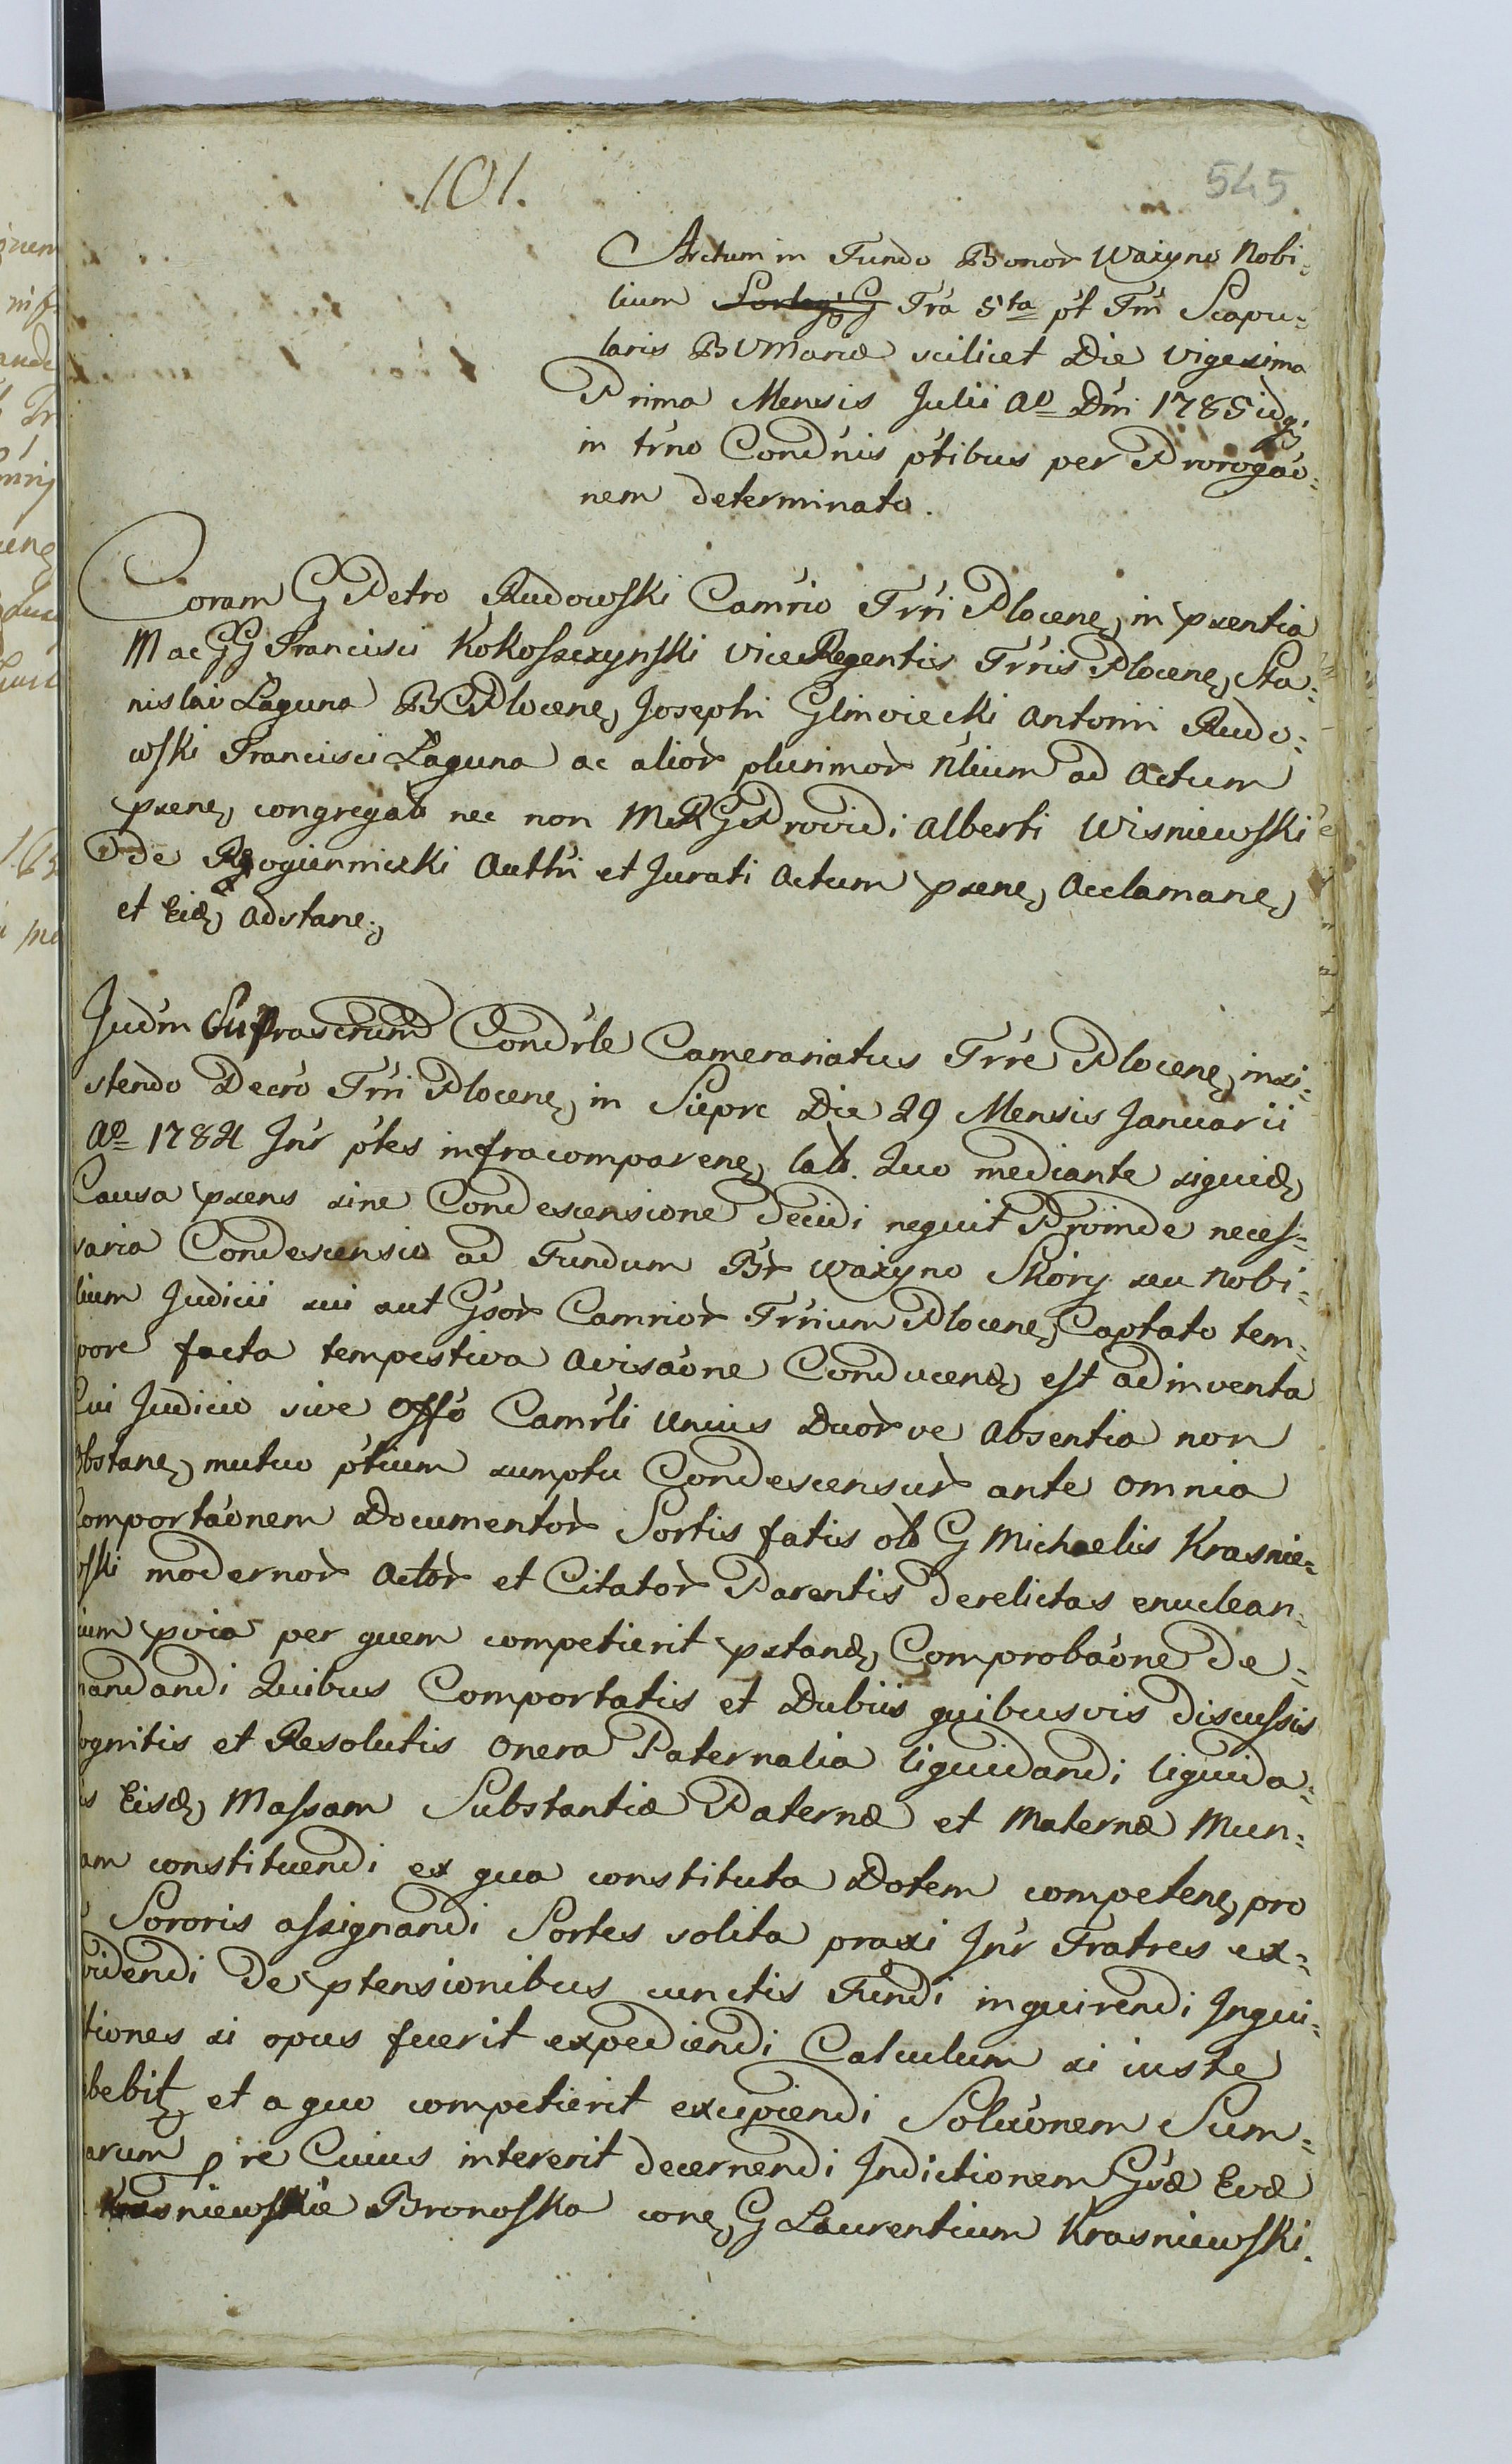 101.
545
Actum in Fundo Bonor Wazyno Nobi:
lium Fra 5ta pt Fm Scapu:
laris BVMariæ scilicet Die vigesima
Prima Mensis Julii Ao Dni 1785 idq;
in trno Condnis ptibus per Prorogao:
nem determinato.
Coram G Petro Rudowski Camrio Trri Plocen, in pxentia
M ac GG Francisci Kokoszczynski ViceRegentis Trris Plocen, Sta:
nislai Laguna BCPlocen, Josephi Glinoiecki Antonii Rudo:
wski Francisci Laguna ac alior plurimor Nlium ad Actum
pxen, congregat nec non MRGProvidi Alberti Wisniewski
de Rogienniczki Authri et Jurati Actum pxen, Acclaman,
et Eid, adstan,
Judm Suprascrum Condrle Camerariatus Trre Plocen, insi:
stendo Decro Trri Plocen, in Sieprc Die 29 Mensis Januarii
Ao 1784 Inr ptes infracomparen, lat. Quo mediante siquid,
Causa pxens sine Condescensione decidi nequit Proinde necess:
saria Condescensio ad Fundum Br Wazyno Skory seu Nobi:
lium Judicii sui aut Gsor Camrior Trrium Plocen, Captato tem:
pore facta tempestiva avisaone Conducend, est adinventa
Cui Judicio sive Offo Camrli Unius Duor ve absentia non
Obstan, mutuo ptium sumptu Condescensur ante omnia
Comportaonem Documentor Sortis fatis olt G Michaelis Krasnie:
wski modernor Actor et Citator Parentis derelictas enuclean:
ium pvia per quem competierit pxtand, Comprobaone de:
mandandi Quibus Comportatis et Dubiis quibusvis discussis
cognitis et Resolutis Onera Paternalia liquidandi liquida:
is Eisd, Massam Substantiæ Paternæ et Maternæ Mun:
am constituendi ex qua constituta Dotem competen, pro
Sororis assignandi Sortes solita praxi Inr Fratres ex:
videndi de ptensionibus cunctis Fundi inquirendi Inqui:
tiones si opus fuerit expediendi Calculum si iuste
bebit, et a quo competierit excipiendi Soluonem Sum:
arum pre Cuius intererit decernendi Indictionem Gsæ Evæ
Krasniewskie Bronoska con, G Laurentium Krasniewski.